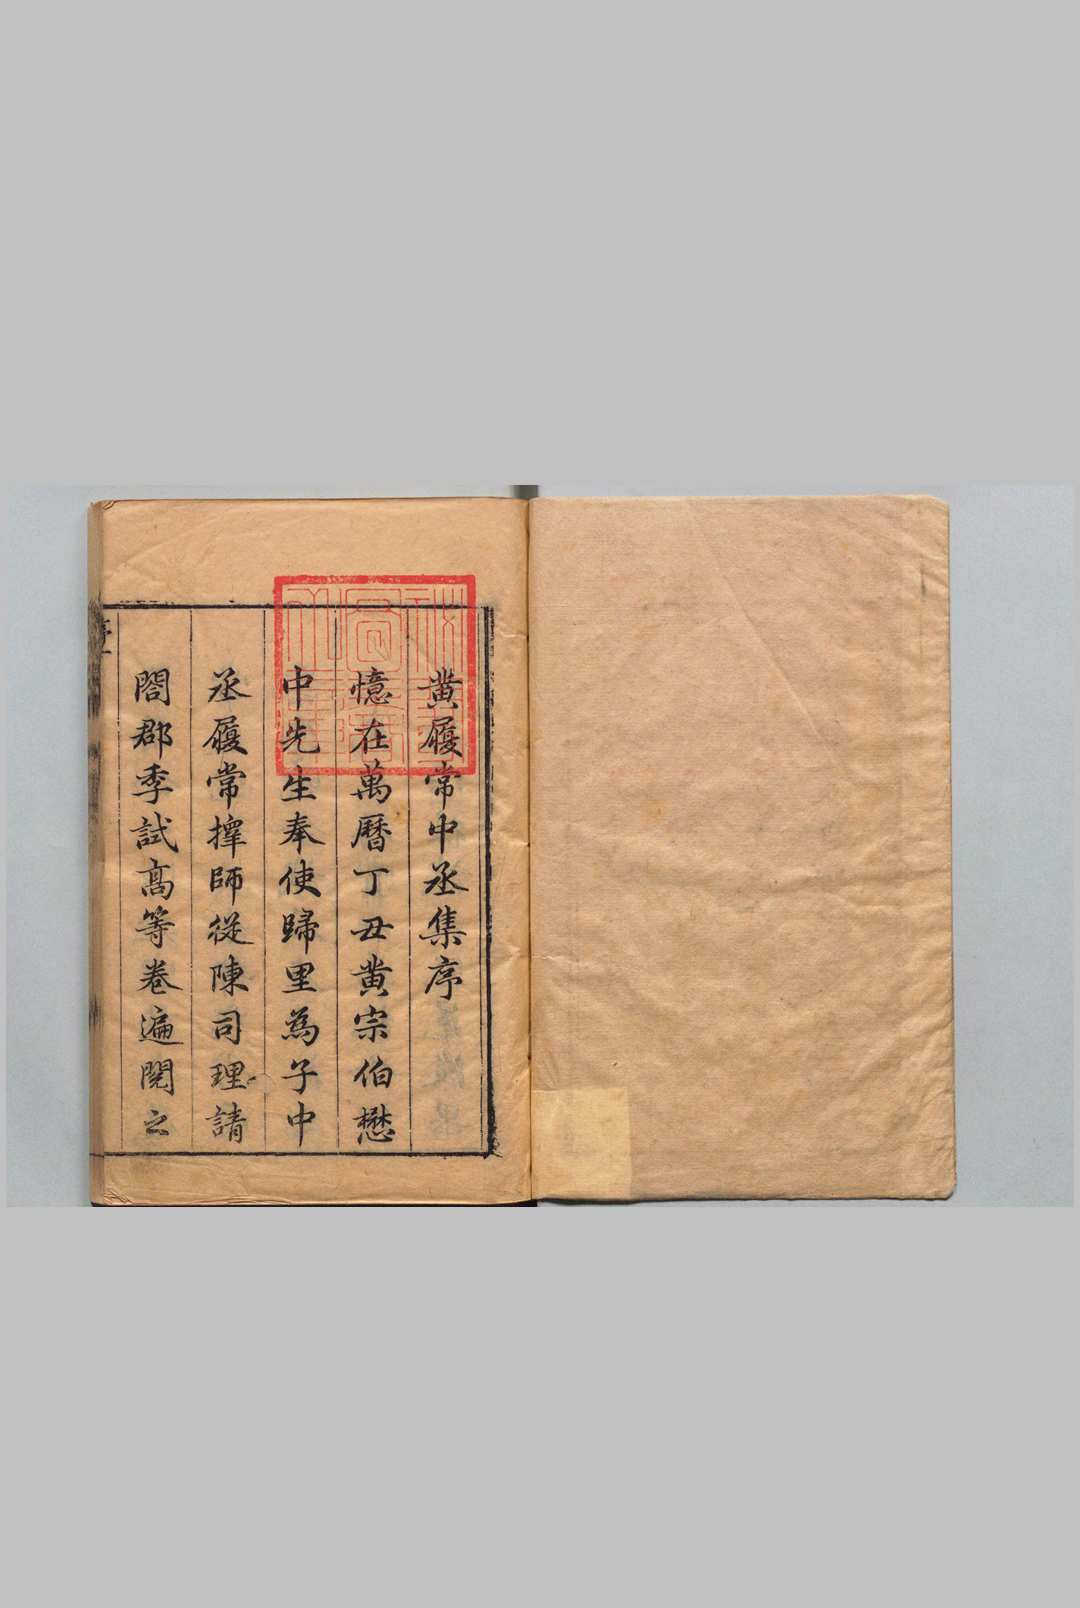 黄履常中丞集序
憶在萬曆丁丑黄宗伯懋
中先生奉使歸里為子中
丞履常擇師從陳司理請
閤郡季試高等卷遍閱之